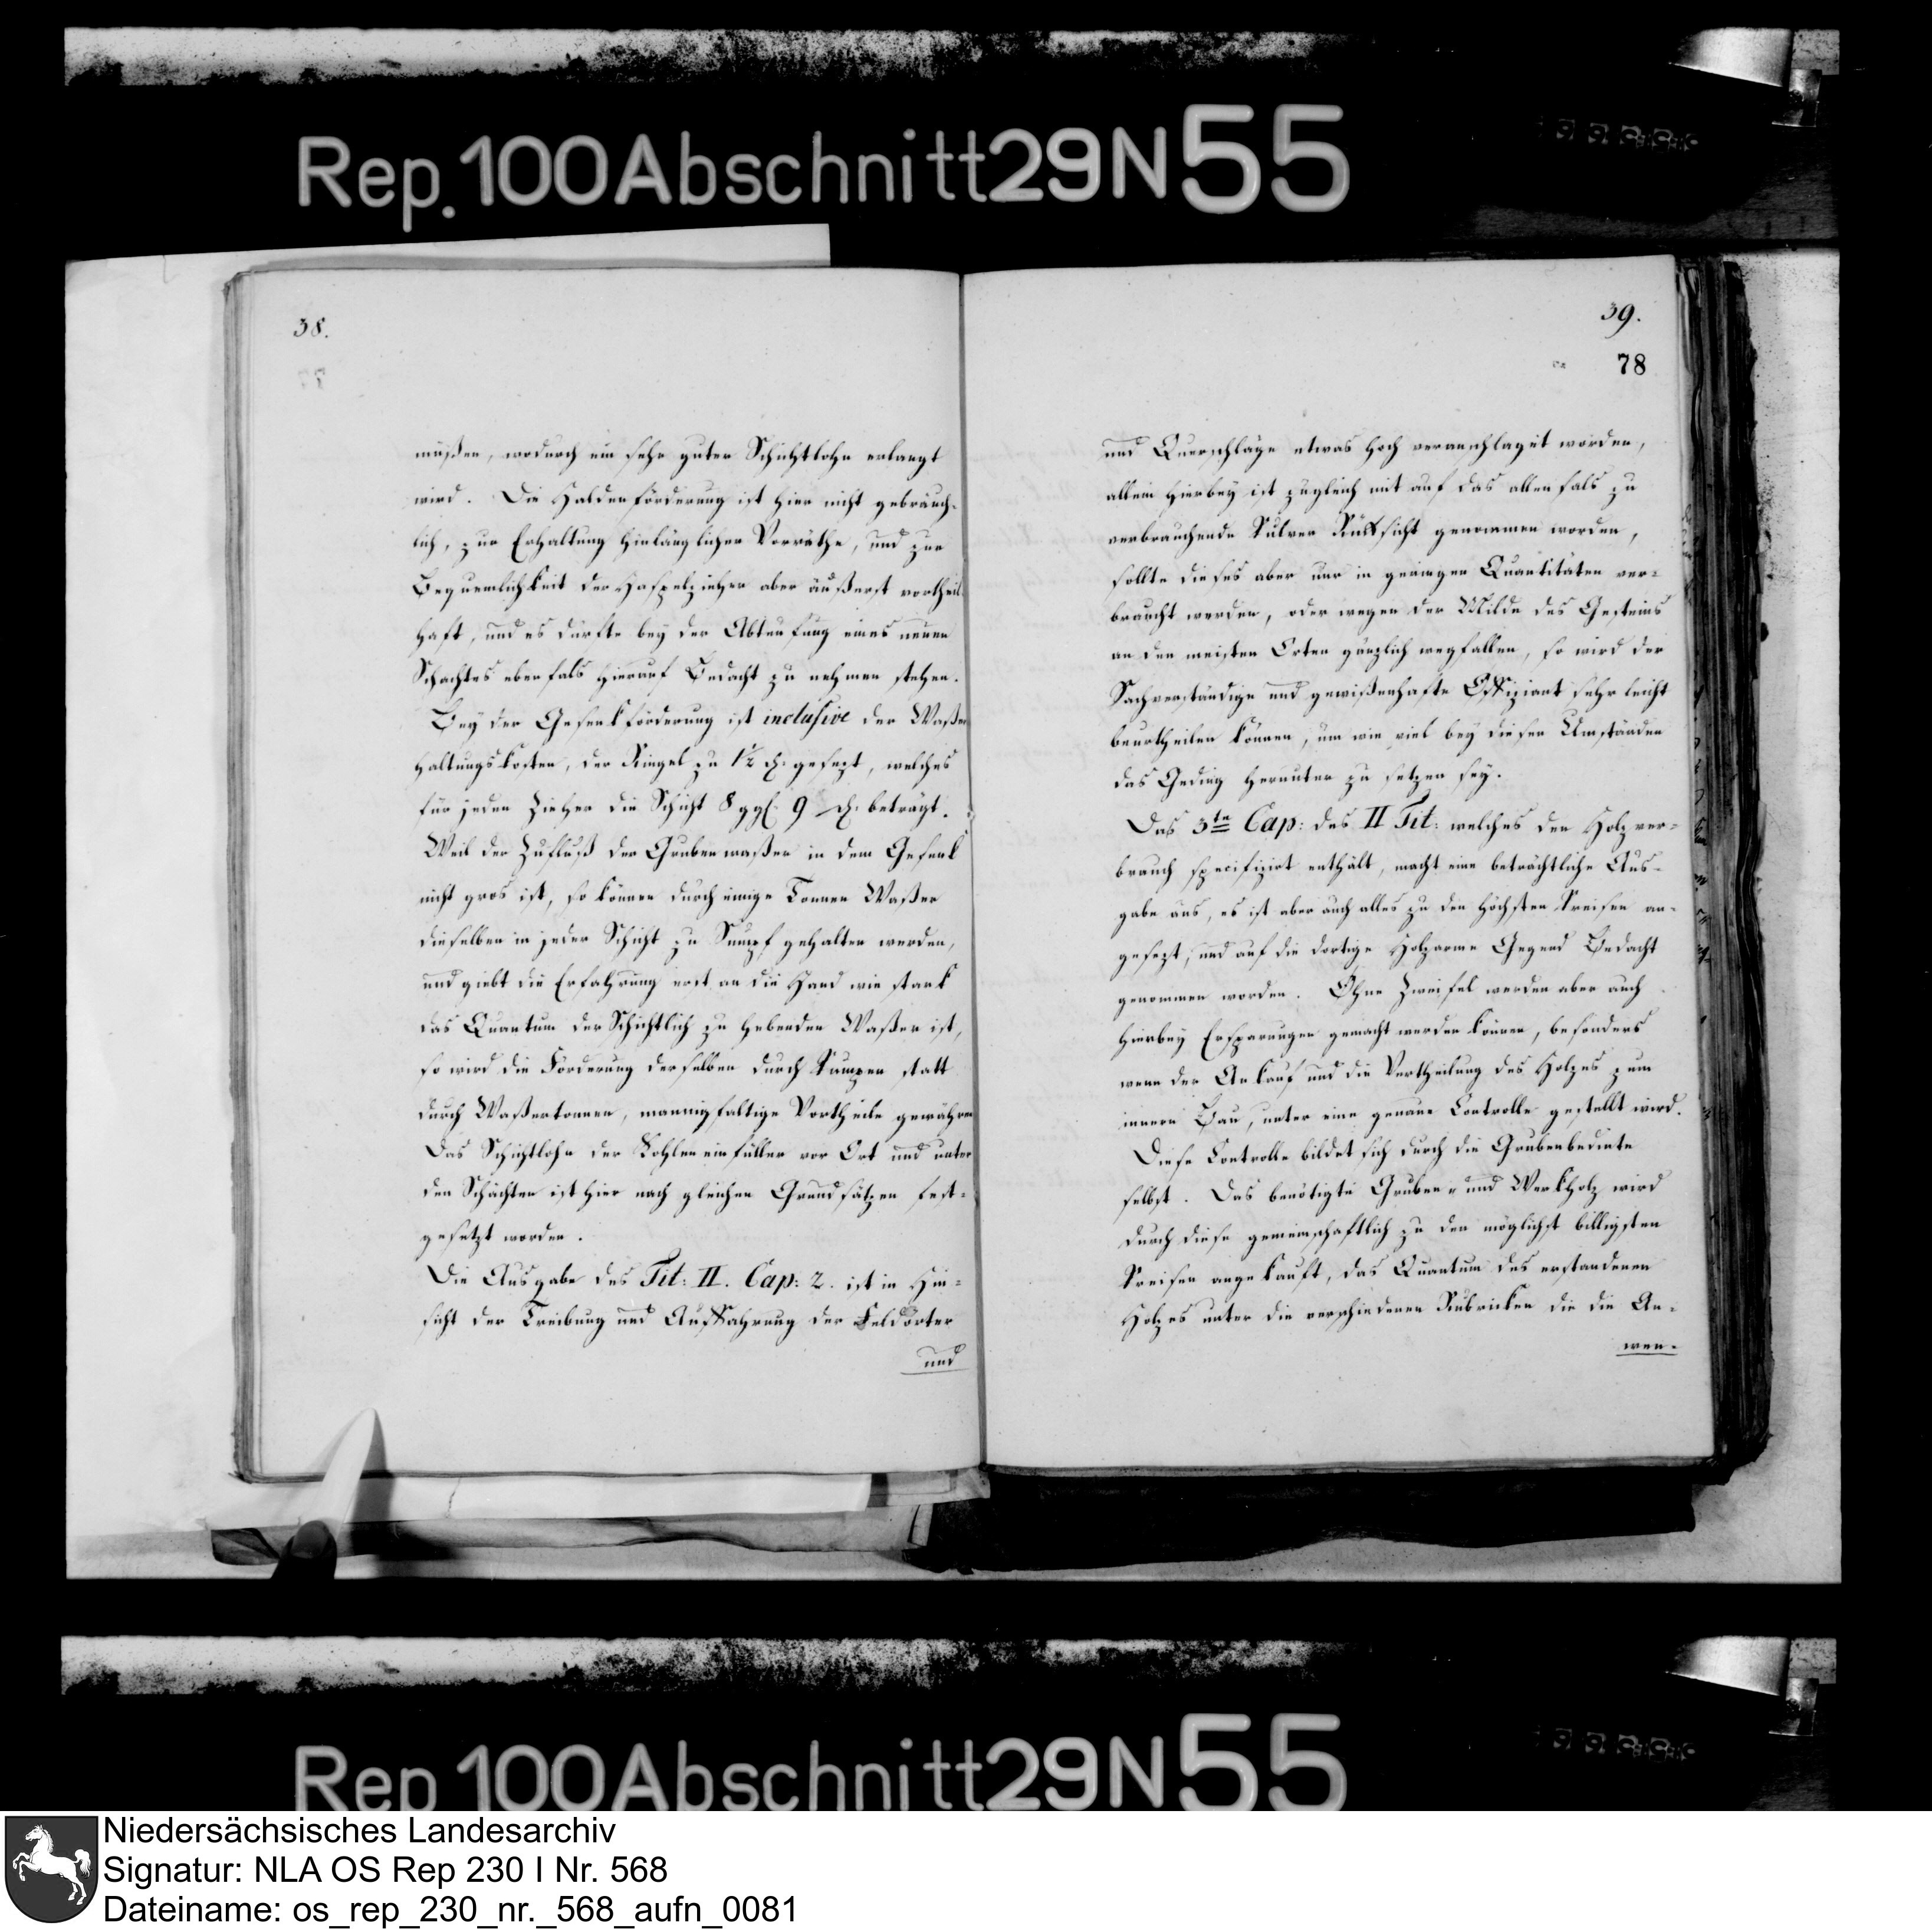 Rep. 100 Abschnitt 29 N 55
38.
müßen, wodurch ein sehr guter Schichtlohn erlangt
wird. Die Haldenförderung ist hier nicht gebräuch-
lich, zur Erhaltung hinlänglicher Vorräthe, und zur
Bequemlichkeit der Haspelzieher aber äußerst vortheil
haft, und es dürfte bey der Abteufung eines neuen
Schachtes ebenfals hierauf Bedacht zu nehmen stehen.
Bey der Gesenkförderung ist inclusive der Waßer
haltungskosten, der Ringel zu 1½ d. gesezt, welches
für jeden Zieher die Schicht 8 ggl. 9 d. beträgt.
Weil der Zufluß der Grubenwaßer in dem Gesenk
nicht gros ist, so können durch einige Tonnen Waßer
dieselben in jeder Schicht zu Sumpf gehalten werden,
und giebt die Erfahrung erst an die Hand wie stark
das Quantum der Schichtlich zu hebenden Waßer ist,
so wird die Förderung derselben durch Pumpen statt
durch Waßertonnen, mannigfaltige Vortheile gewähren
Das Schichtlohn der Kohleneinfüller vor Ort und unter
den Schächten ist hier nach gleichen Grundsätzen fest-
gesetzt worden.
Die Ausgabe des Tit: II. Cap: 2. ist in Hin-
sicht der Treibung und Auffahrung der Feldörter
und
39.
78
und Querschläge etwas hoch veranschlaget worden,
allein hierbey ist zugleich mit auf das allenfals zu
verbrauchende Pulver Rüksicht genommen worden,
sollte dieses aber nur in geringen Quantitäten ver-
braucht werden, oder wegen der Milde des Gesteins
an den meisten Orten gänzlich wegfallen, so wird der
Sachverständige und gewißenhafte Offiziant sehr leicht
beurtheilen können, um wie viel bey diesen Umständen
das Geding herunter zu setzen sey.
Das 3te Cap: des II Tit: welches den Holzver-
brauch specifizirt enthält, macht eine beträchtliche Aus-
gabe aus, es ist aber auch alles zu den höchsten Preisen an-
gesezt, und auf die dortige Holzarme Gegend Bedacht
genommen worden. Ohne Zweifel werden aber auch
hierbey Ersparungen gemacht werden können, besonders
wenn der Ankauf und die Vertheilung des Holzes zum
innern Bau, unter eine genaue Controlle gestellt wird.
Diese Controlle bildet sich durch die Grubenbediente
selbst. Das benötigte Gruben- und Werkholz wird
durch diese gemeinschaftlich zu den möglichst billigsten
Preisen angekauft, das Quantum des erstandenen
Holzes unter die verschiedenen Rubricken die die An-
wen-
Rep 100 Abschnitt 29 N 55
Niedersächsisches Landesarchiv
Signatur: NLA OS Rep 230 I Nr. 568
Dateiname: os_rep_230_nr._568_aufn_0081